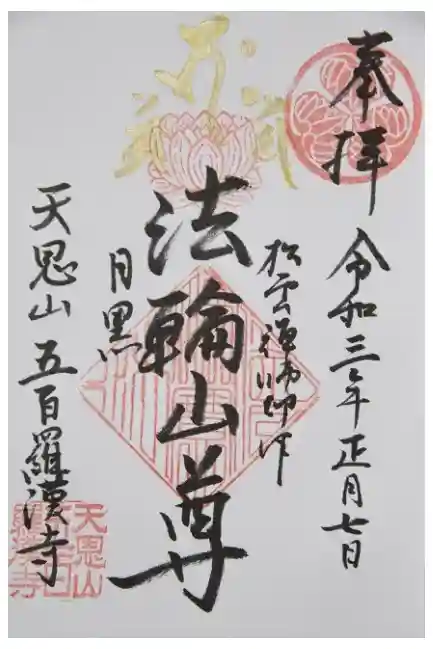 奉拝
令和三年正月七日
松雲禅師御作
法輪山尊
目黒
天恩山五百羅漢寺
天恩山